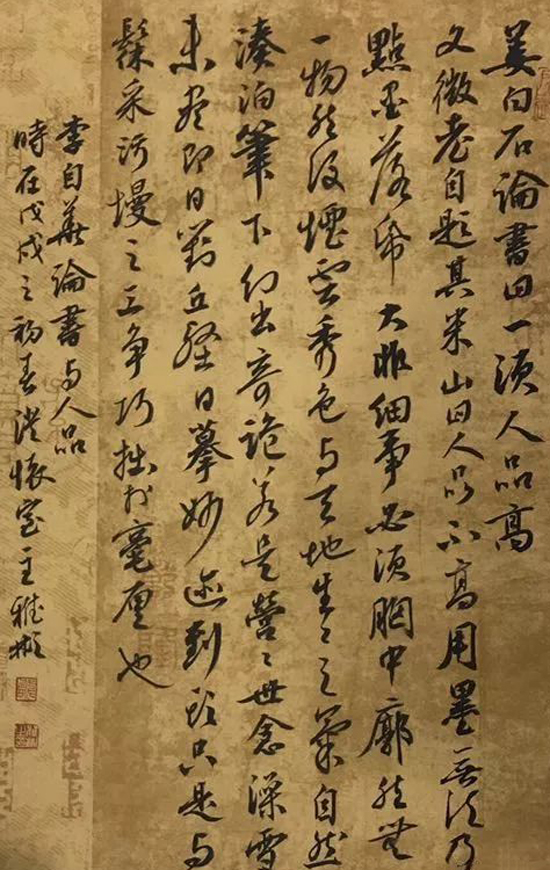 姜白石論書曰一須人品高
文徵老自題其米山曰人品不高用墨無法乃
點墨落紙大非細事必須胸中廓然無
一物然後煙雲秀色与天地生之氣自然
湊泊筆下幻出奇詭若是營世念澡雪
未盡即日對丘壑日摹妙迹到頭只是与
髹采污墁之工争巧拙於毫厘也
李日華論書与人品
時在戊戌之初春澄懷室主雅彬